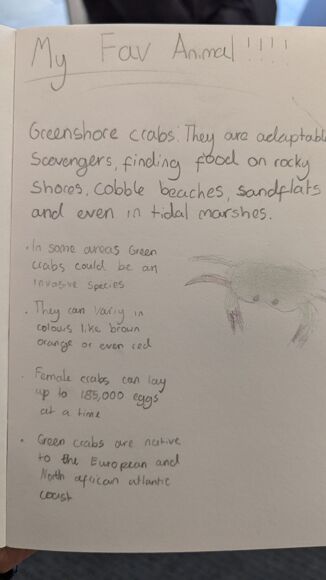 My Fav Animal !!!!
Greenshore crabs. They are adaptable
Scavengers, finding food on rocky
Shores, cobble beaches, sandflats
and even in tidal marshes.
• In some areas Green
crabs could be an
invasive species
• They can variy in
colours like brown
orange or even red
• Female crabs can lay
up to 185,000 eggs
at a time
• Green crabs are native
to the European and
North african atlantic
coast